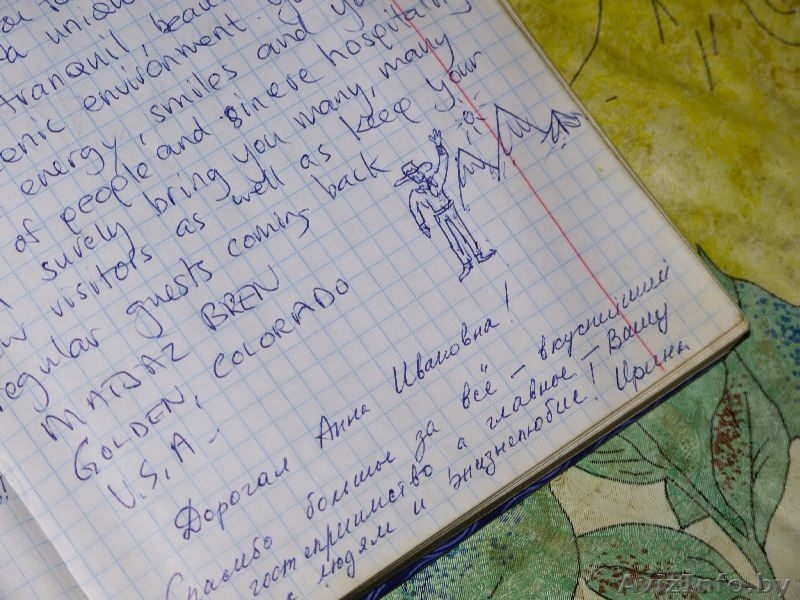 a unique
tranquil, beau
scenic environment
energy, smiles and yo
of people and sincere hospitality
surely bring you many, many
new visitors as well as keep your
regular guests coming back
MATJAZ BREN
GOLDEN, COLORADO
U.S.A.
Дорогая Анна Ивановна!
Спасибо большое за всё – вкуснейший
гостеприимство а главное – Вашу
к людям и жизнелюбие! Ирина
AvizInfo.by